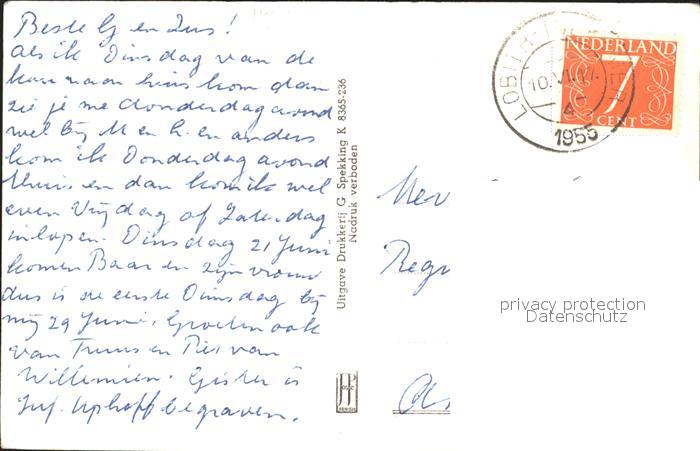 Beste G en Zus!
Als ik Dinsdag van de
kan naar huis kom dan
zie je me donderdagavond
wel bij M en h. en anders
kom ik Donderdag avond
thuis en dan kom ik wel
even Vrijdag of Zaterdag
inlopen. Dinsdag 21 Juni
komen Baar en zijn vrouw
dus is de eerste Dinsdag bij
mij 29 Juni. Groeten ook
van Truus en Piet van
Willemien. Gister is
Juf. Uphoff begraven.
Uitgave Drukkerij G Spekking K 8365-236
Nadruk verboden
NEDERLAND
7
CENT
LOBITH-
10.VI.
1955
Mev
Regu
privacy protection
Datenschutz